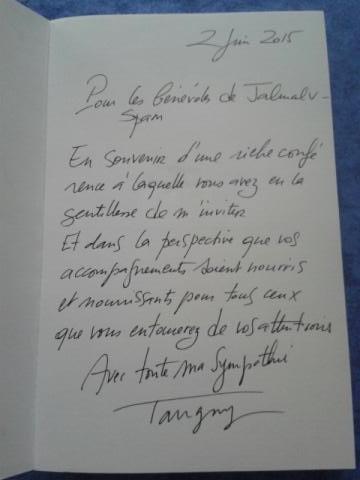 2 Juin 2015
Pour les bénévoles de Jalmalv-
Epern
En souvenir d'une riche confé
rence à laquelle vous avez eu la
gentillesse de m'inviter
Et dans la perspective que vos
accompagnements soient nourris
et nourrissants pour tous ceux
que vous entourerez de vos attentions
Avec toute ma sympathie
Tanguy